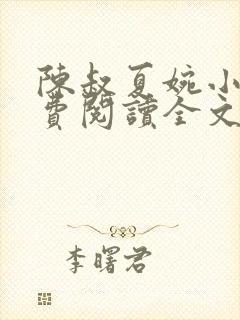 陳叔夏婉小
費閱讀全文
李曙君